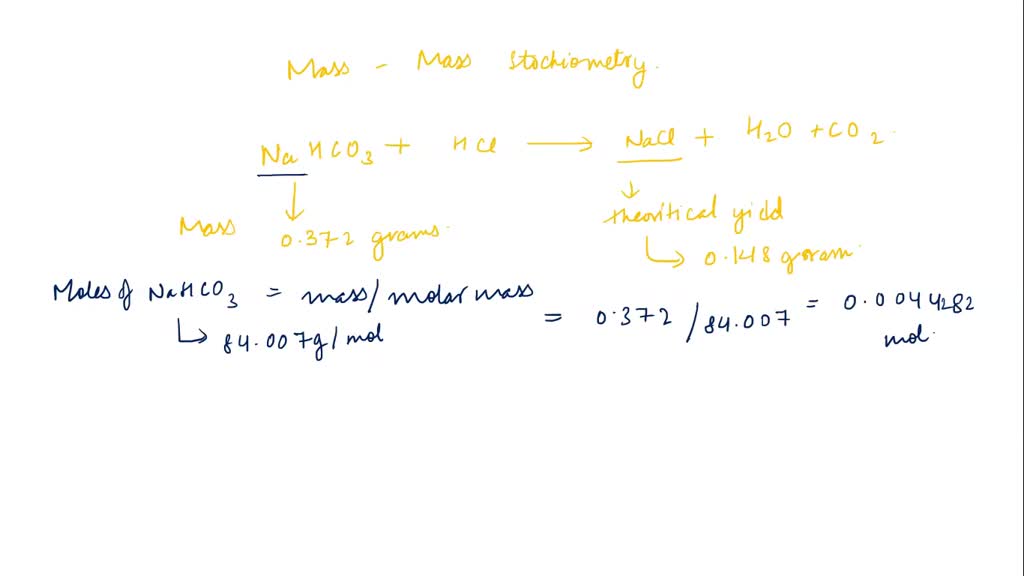 Mass - Mass Stochiometry.
NaHCO3 + HCl → NaCl + H2O + CO2.
Mass 0.372 grams.
theoritical yield
0.148 gram.
Moles of NaHCO3 = mass/molar mass = 0.372 / 84.007 = 0.0044282 mol.
84.007g/mol